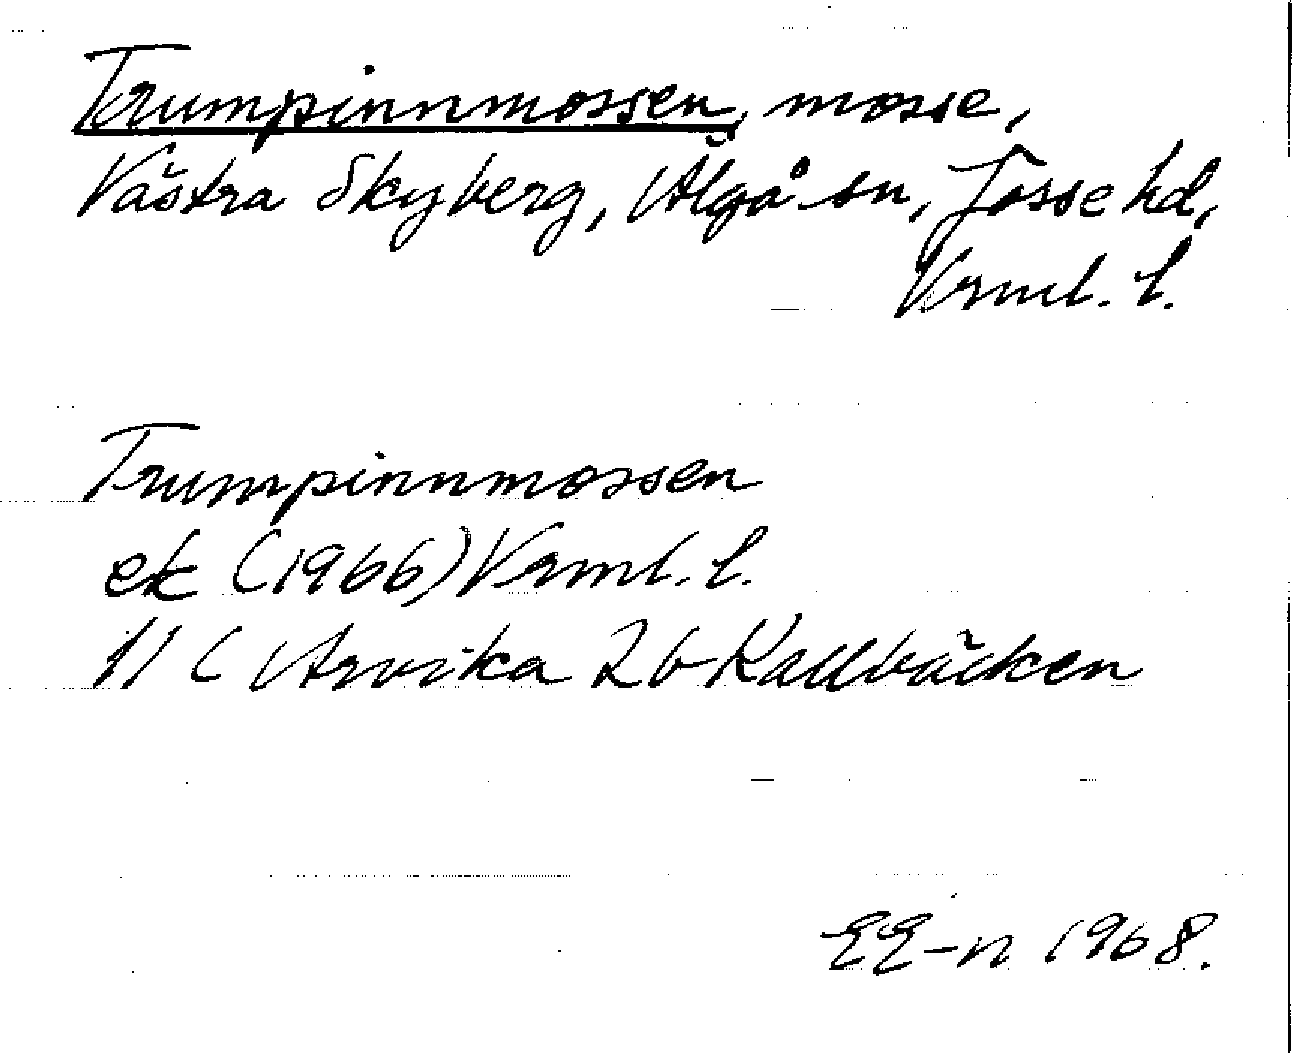 Trumpinnmossen, mosse,
Västra Skyberg, Älgå sn, Jösse hd,
Vrml. l.
Trumpinnmossen
ek (1966) Vrml. l.
11 C Arvika 2b Kallbäcken
EE-n 1968.